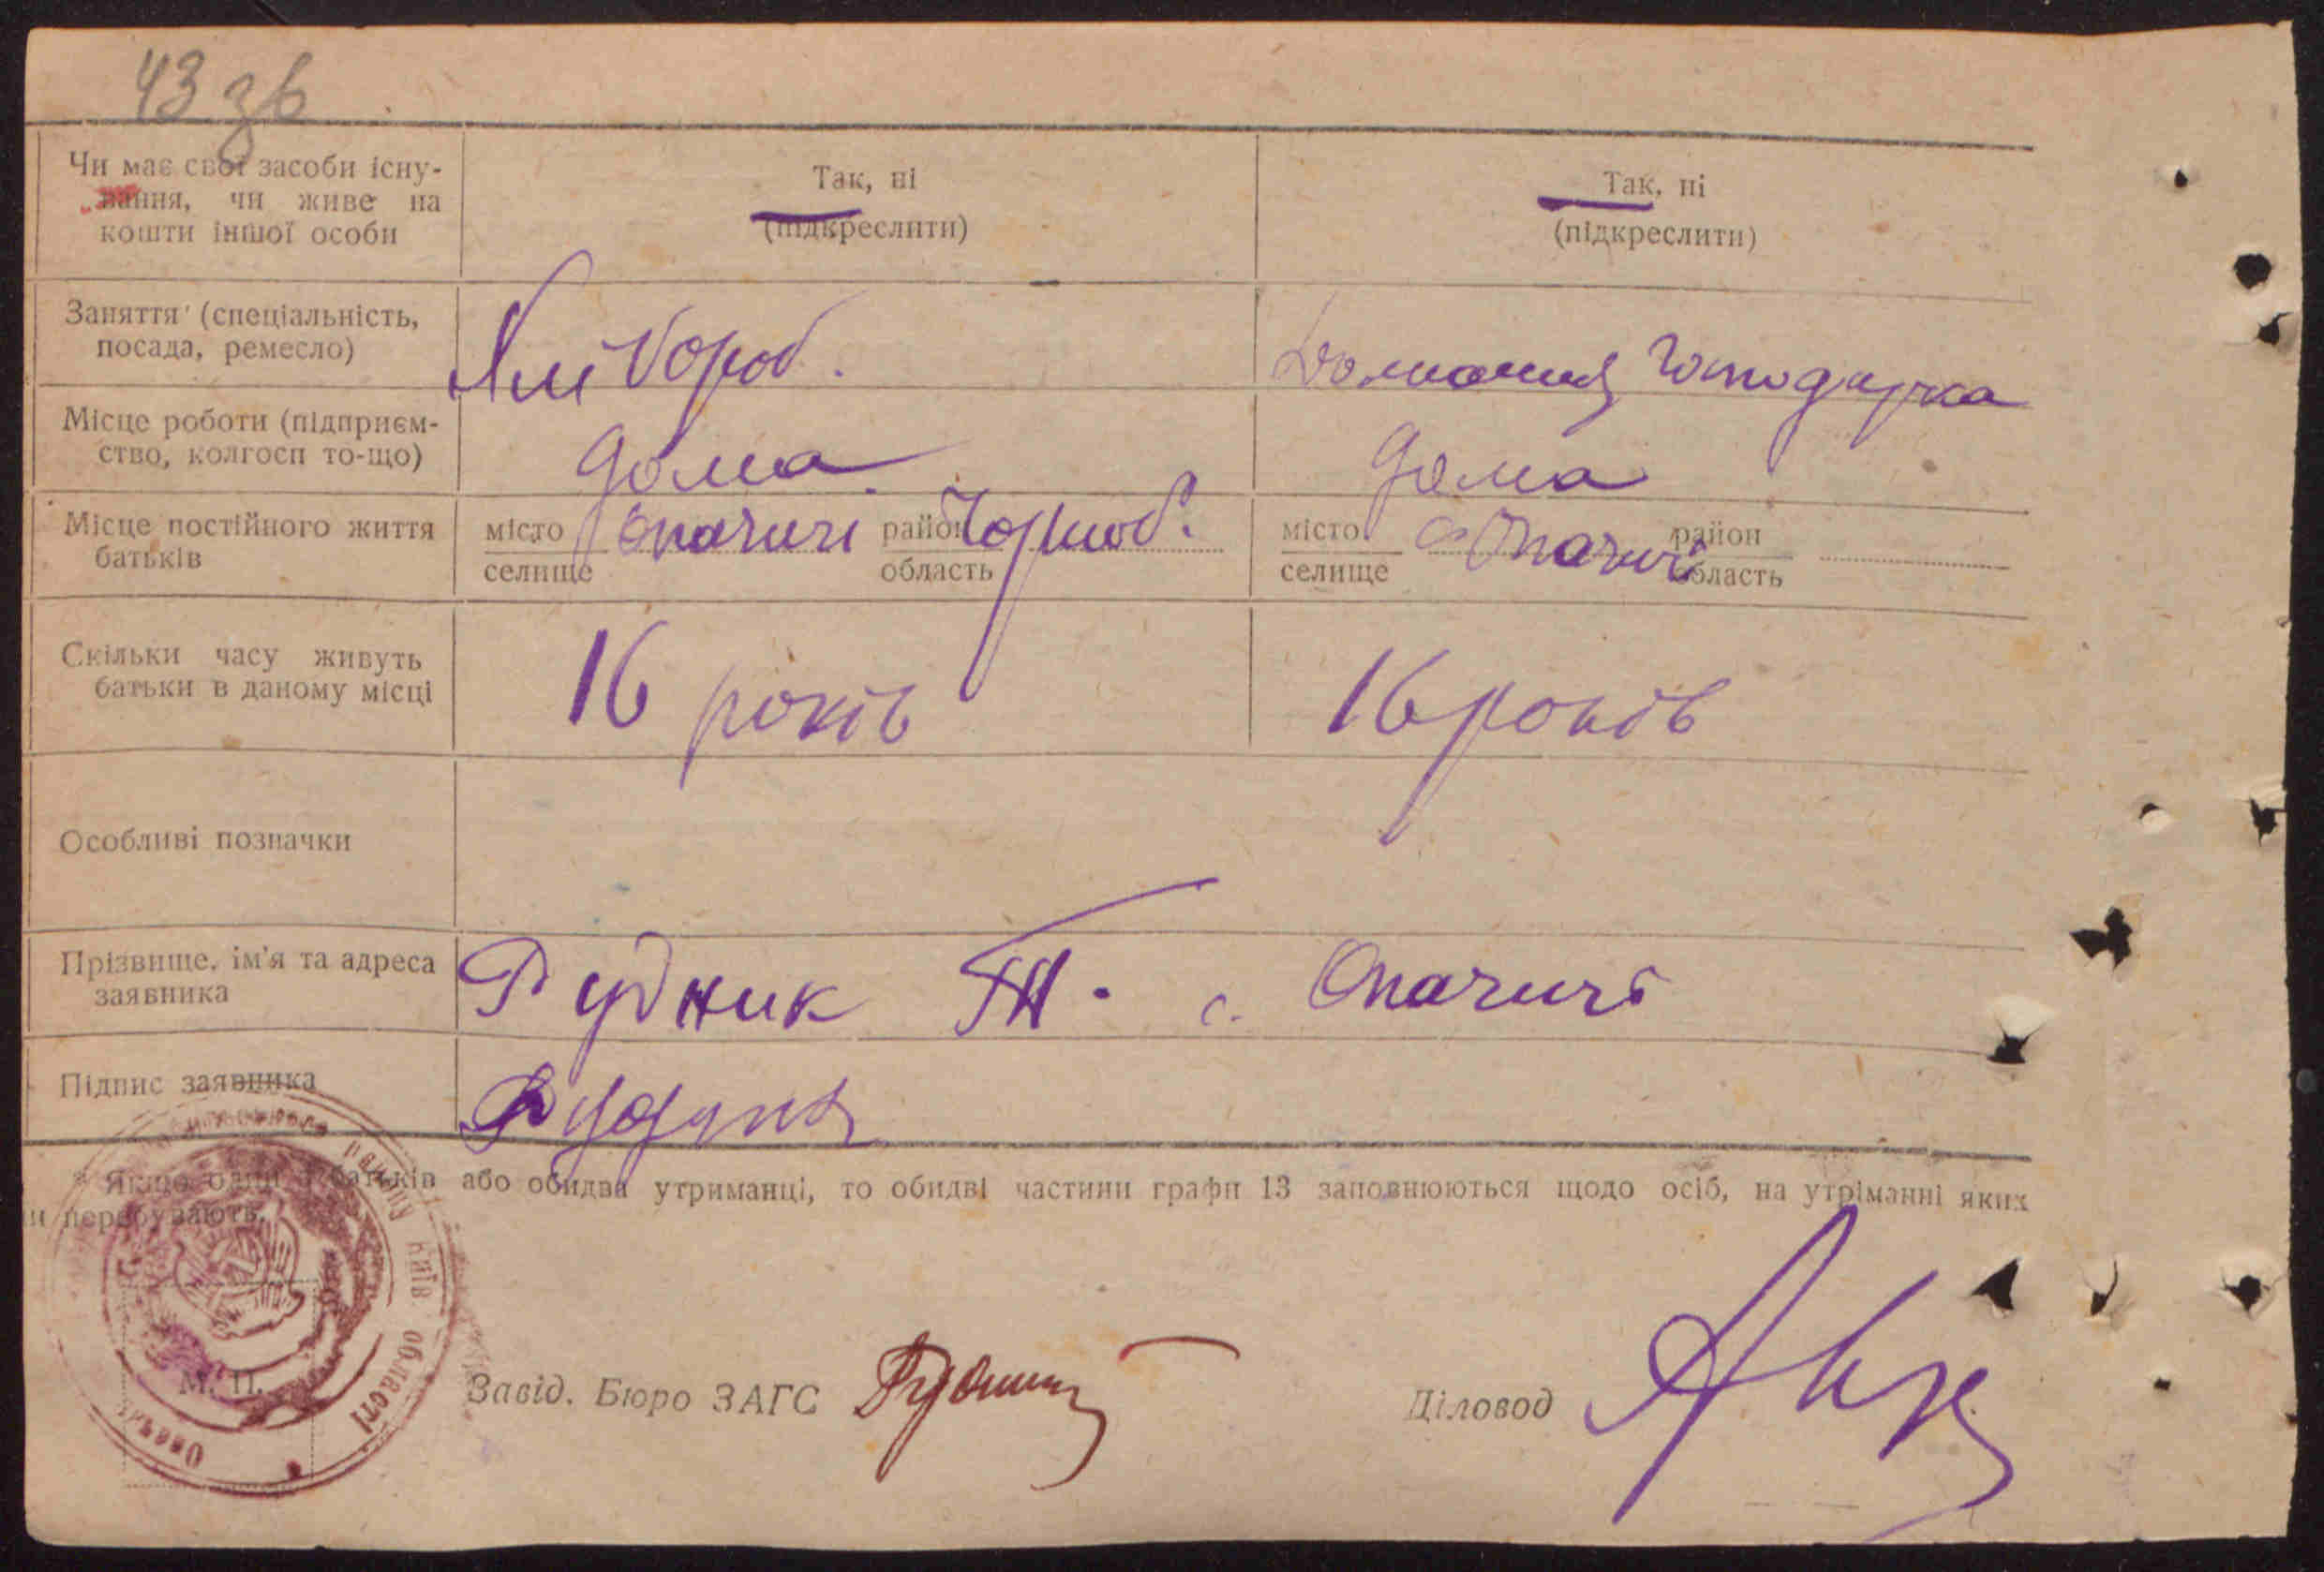 43 зв
Чи має свої засоби існу-
вання, чи живе на
кошти іншої особи
Так, ні
(підкреслити)
Так, ні
(підкреслити)
Заняття (спеціальність,
посада, ремесло)
Домашня господарка
Місце роботи (підприєм-
ство, колгосп то-що)
дома
дома
Місце постійного життя
батьків
місто
селище
Опачичі
район
область
Чорноб.
місто
селище
с Опачичі
район
область
Скільки часу живуть
батьки в даному місці
16 років
16 років
Особливі позначки
Прізвище, ім'я та адреса
заявника
Рудник с. Опачичі
Підпис заявника
* Якщо один з батьків або обидва утриманці, то обидві частини графи 13 заповнюються щодо осіб, на утриманні яких
и перебувають.
району Київ. області
М. П.
Завід. Бюро ЗАГС
Діловод